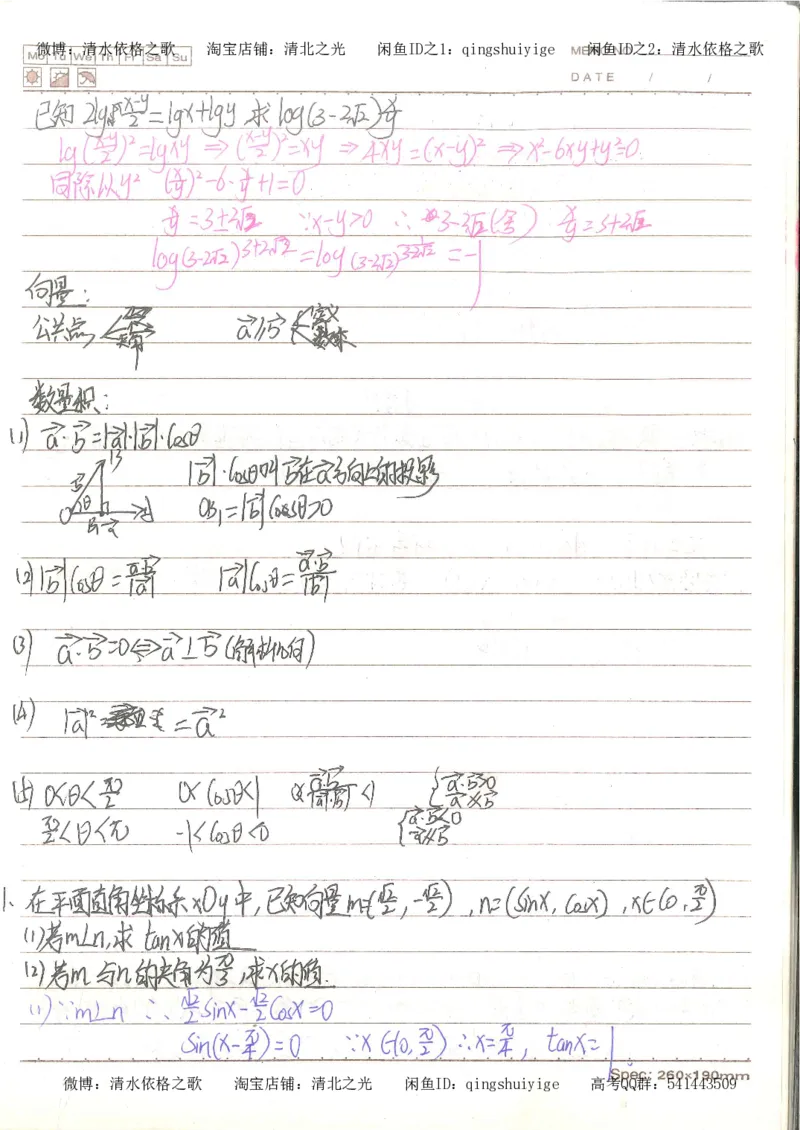 微博：清水依格之歌 淘宝店铺：清北之光 闲鱼ID之1：qingshuiyige 闲鱼ID之2：清水依格之歌
Mo Tu We Th Fr Sa Su
DATE / /
已知 2lg (x-y)/2 = lgx+lgy 求 log(3-2√2) x/y
lg((x-y)/2)² = lgxy ⇒ ((x-y)/2)² = xy ⇒ 4xy=(x-y)² ⇒ x²-6xy+y²=0
同除以y² (x/y)²-6·x/y+1=0
x/y = 3±2√2 ∵x-y>0 ∴ 3-2√2(舍) x/y=3+2√2
log(3-2√2)^(3+2√2) = log(3-2√2)^(1/(3-2√2)) = -1
向量:
公共点 a⃗∥b⃗ 定义
数量积:
(1) a⃗·b⃗=|a⃗|·|b⃗|·cosθ
B
b⃗ |b⃗|·cosθ叫b⃗在a⃗方向上的投影
O θ B₁ a⃗ OB₁=|b⃗|cosθ>0
(2) |b⃗|cosθ = a⃗·b⃗/|a⃗| |a⃗|cosθ = a⃗·b⃗/|b⃗|
(3) a⃗·b⃗=0⇔a⃗⊥b⃗ (解析几何)
(4) |a⃗|²= =a⃗²
0<θ<π/2 0<cosθ<1 0<a⃗·b⃗/|a⃗||b⃗|<1 { a⃗·b⃗>0
π/2<θ<π -1<cosθ<0 { a⃗·b⃗<0
1. 在平面直角坐标系xOy中,已知向量m=(√2/2,-√2/2),n=(sinx,cosx),x∈(0,π/2)
(1)若m⊥n,求tanx的值
(2)若m与n的夹角为π/3,求x的值.
(1)∵m⊥n ∴ √2/2 sinx-√2/2 cosx=0
sin(x-π/4)=0 ∵x∈(0,π/2) ∴x=π/4, tanx=1
Spec: 260x190mm
微博：清水依格之歌 淘宝店铺：清北之光 闲鱼ID：qingshuiyige 高考QQ群：541443509